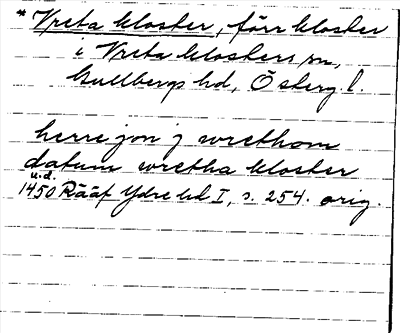 * Vreta kloster, förr kloster
i Vreta klosters sn,
Gullbergs hd, Österg. l.
herre jon j wrethom
datum wretha kloster
u.d.
1450 Rääf Ydre hd I, s. 254. orig.